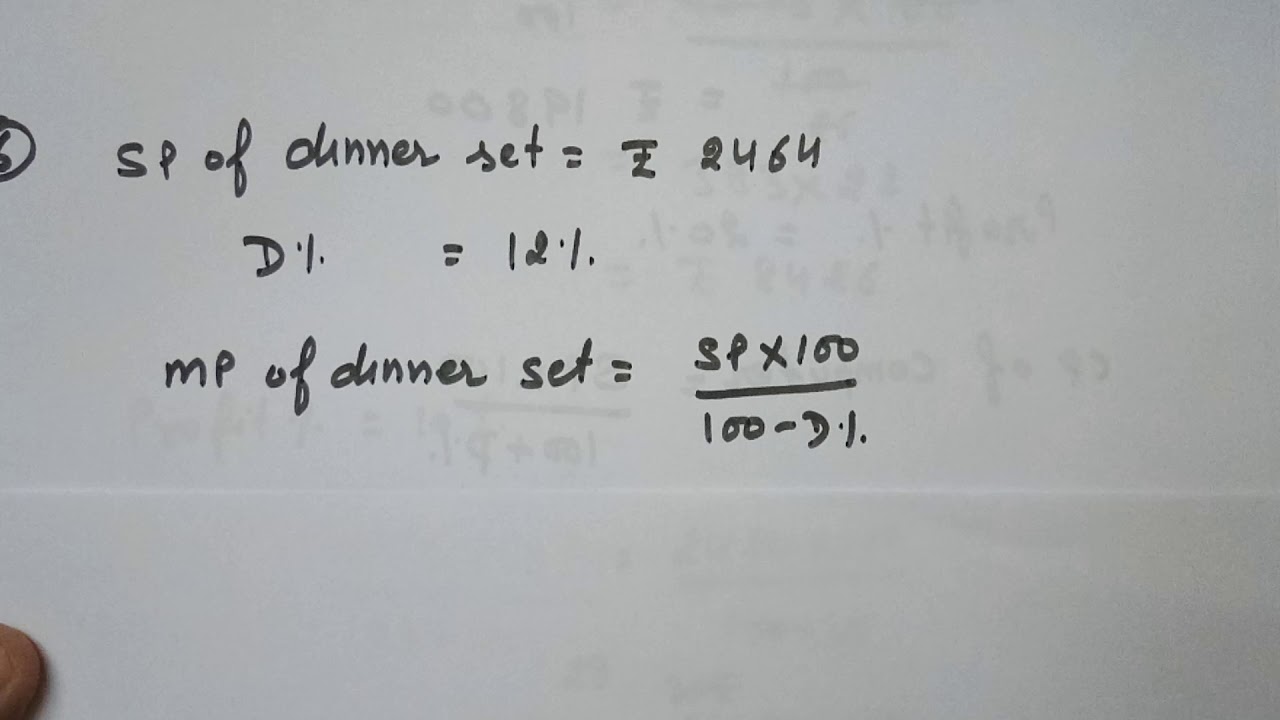 SP of dinner set = ₹ 2464
D% = 12%.
MP of dinner set = SP×100
100-D%.